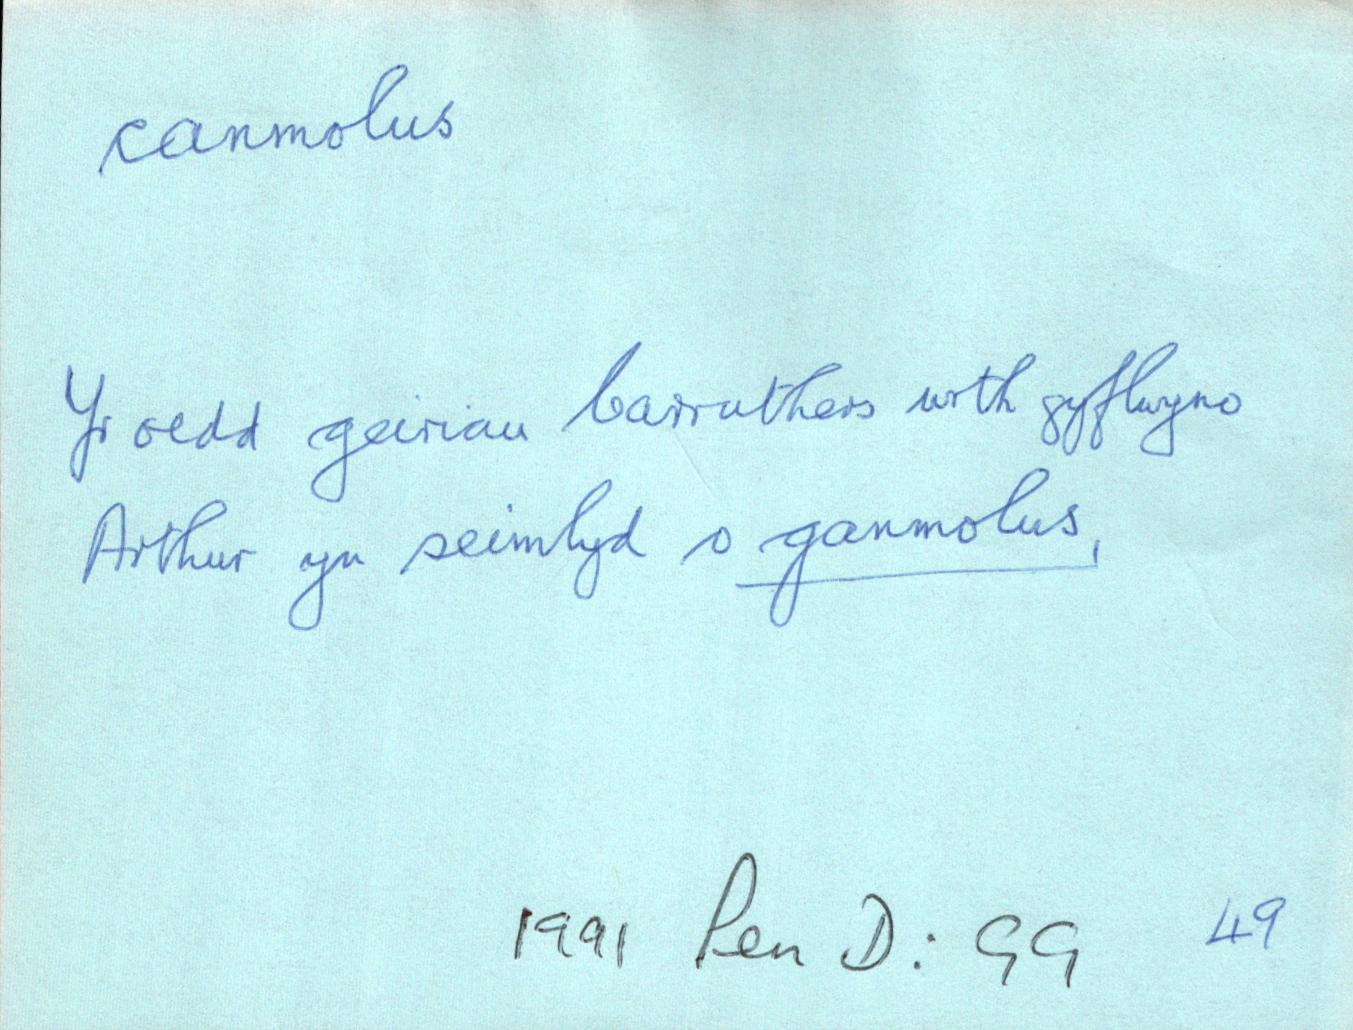 canmolus
Yr oedd geiriau Carruthers wrth gyflwyno
Arthur yn seimlyd o ganmolus,
1991 Pen D: GG 49